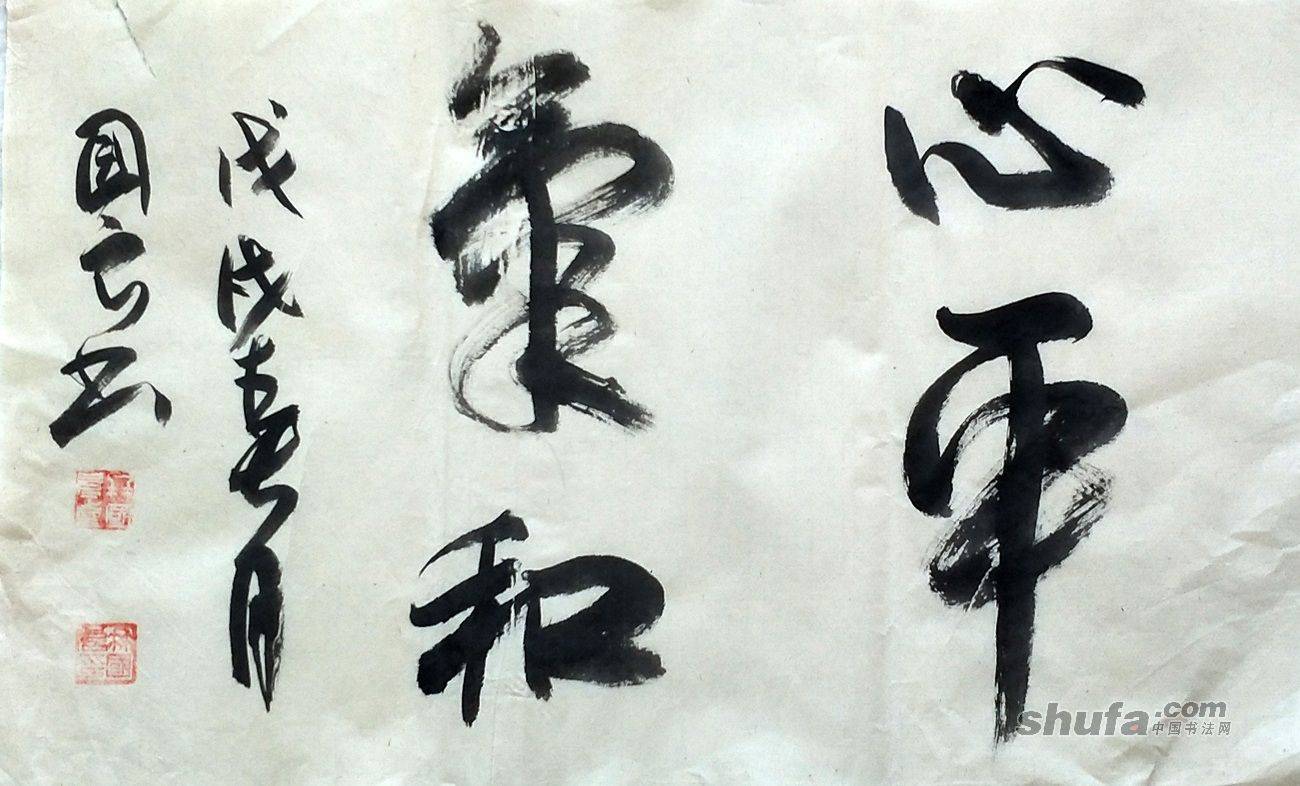 心平
氣和
戊戌春月
國立书
shufa.com
中国书法网